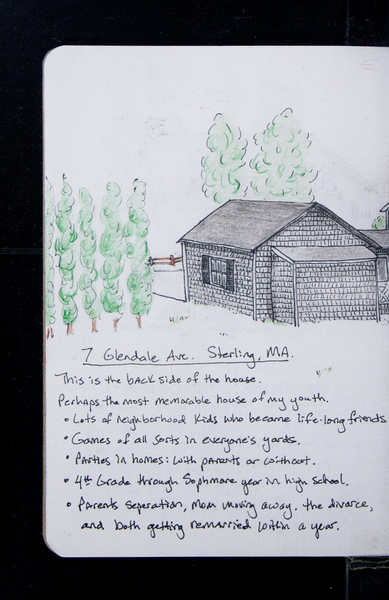 7 Glendale Ave. Sterling, MA.
This is the back side of the house.
Perhaps the most memorable house of my youth.
• Lots of neighborhood kids who became life-long friends
• Games of all sorts in everyone's yards.
• Parties in homes: with parents or without.
• 4th Grade through Sophmore year in high school.
• Parents seperation, mom moving away, the divorce,
and both getting remarried within a year.